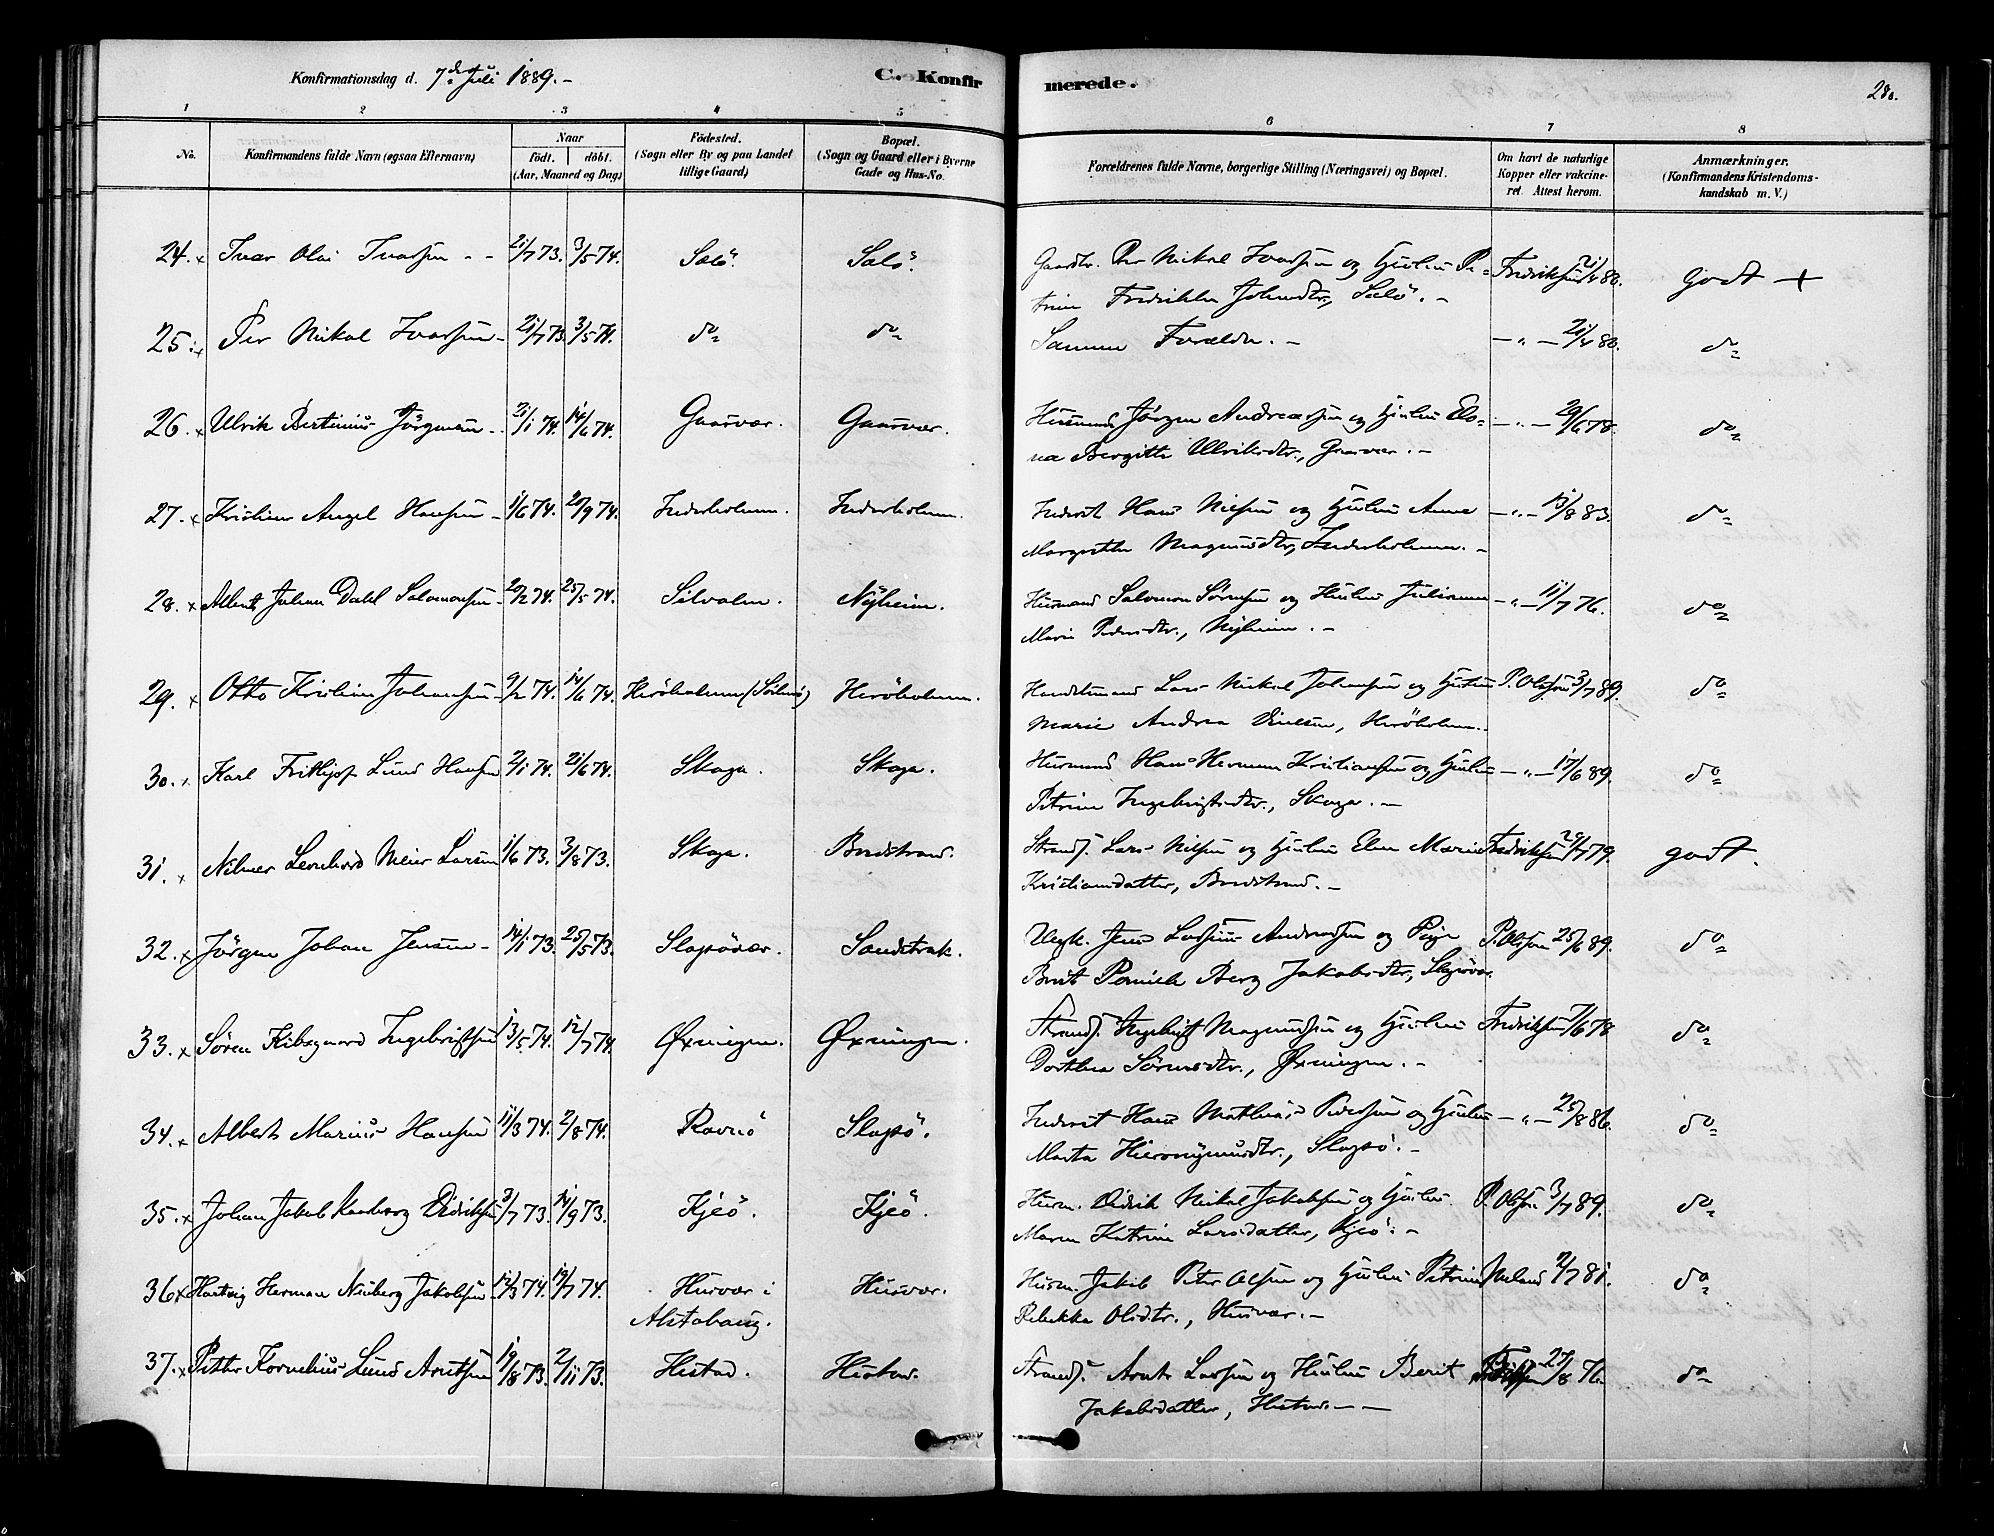 Konfirmationsdag d. 7de Juli 1889.-
C. Konfirmerede.
280.
1 2 3 4 5 6 7 8
No.
Konfirmandens fulde Navn (ogsaa Efternavn)
Naar
födt. döbt.
(Aar, Maaned og Dag)
Födested.
(Sogn eller By og paa Landet
tillige Gaard)
Bopæl.
(Sogn og Gaard eller i Byerne
Gade og Hus-No.
Forældrenes fulde Navne, borgerlige Stilling (Næringsvei) og Bopæl.
Om havt de naturlige
Kopper eller vakcine-
ret. Attest herom.
Anmærkninger.
(Konfirmandens Kristendoms-
kundskab m. V.)
24. x Ivar Olai Ivarsen - - 21/7 73. 3/5 74. Salö. Salö. Per Nikal Ivarsen og Hustru Pe- Fredriksen 21/4 80. godt +
trine Fredrikke Johnsdtr., Salö. -
25. x Per Nikal Ivarsen - 21/7 73. 3/5 74. do do Samme Forældre. - - " - 21/4 80. do
26. x Ulrik Bertinius Jörgensen - 21/1 74. 14/6 74. Gaasvær. Gaasvær. Husmand Jörgen Andreassen og Hustru - " - 29/6 78. do
Bergitte Ulriksdtr., Gaasvær. -
27. x Kristian Angel Hansen - 1/6 74. 20/9 74. Inderholmen. Inderholmen. Inderst Hans Nilsen og Hustru Anne - " - 13/8 83. do
Margrethe Magnusdtr., Inderholmen. -
28. x Albert Johan Dahl Salomonsen - 20/2 74. 25/5 74. Silvalen. Nyheim. Husmand Salomon Sörensen og Hustru Juliane - " - 11/7 76. do
Marie Pedersdtr., Nyheim. -
29. x Otto Kristian Johansen - 9/2 74. 14/6 74. Heröholmen Heröholmen. Lars Nikal Johansen og Hustru P. Olsen 3/7 89. do
Marie Andrea Heröholmen.
30. x Karl Frithjof Lund Hansen 2/1 74. 21/6 74. Skaga. Skaga. Husmand Hans Herman Kristiansen og Hustru - " - 15/6 89. do
Petrine Ingebrigtsdtr., Skaga. -
31. x Nilmer Leonhard Meier Larsen 1/6 73. 3/8 73. Skaga. Bredstrand. Strands. Lars Nilsen og Hustru Elen Marie Fredriksen 29/7 79. godt.
Kristiansdatter, Bredstrand. -
32. x Jörgen Johan Jensen - 14/1 73. 25/5 73. Slapövær. Sandstrak. Ungk. Jens Andreassen og Pige P. Olsen 25/6 89. do
Berit Pernille Berg Jakobsdtr., Slapövær.
33. x Sören Kibsgaard Ingebrigtsen 13/5 74. 12/7 74. Øxningen. Øxningen. Strands. Ingebrigt Magnussen og Hustru Fredriksen 7/6 78 do
Dorthea Sörensdtr., Øxningen. -
34. x Albert Marius Hansen 11/3 74. 2/8 74. Ravnö Slapö. Inderst Hans Mathias Pedersen og Hustru - " - 25/8 86. do
Marta Hieronymusdtr., Slapö. -
35. x Johan Jakob Didriksen 3/7 73. 14/9 73. Kjeö. Kjeö. Husm. Didrik Nikal Jakobsen og Hustru P. Olsen 3/7 89. do
Maren Katrine Larsdatter, Kjeö. -
36. x Hartvig Herman Neuberg Jakobsen 12/3 74. 19/7 74. Husvær i Husvær. Husm. Jakob Peter Olsen og Hustru Petrine 2/7 81. do
Alstahaug. Rebekka Olsdtr., Husvær. -
37. x Petter Kornelius Lund Arntsen 19/8 73. 2/11 73. Hestad. Hestad. Strands. Arnt Larsen og Hustru Berit 27/8 76. do
Jakobsdatter, Hestad. - -